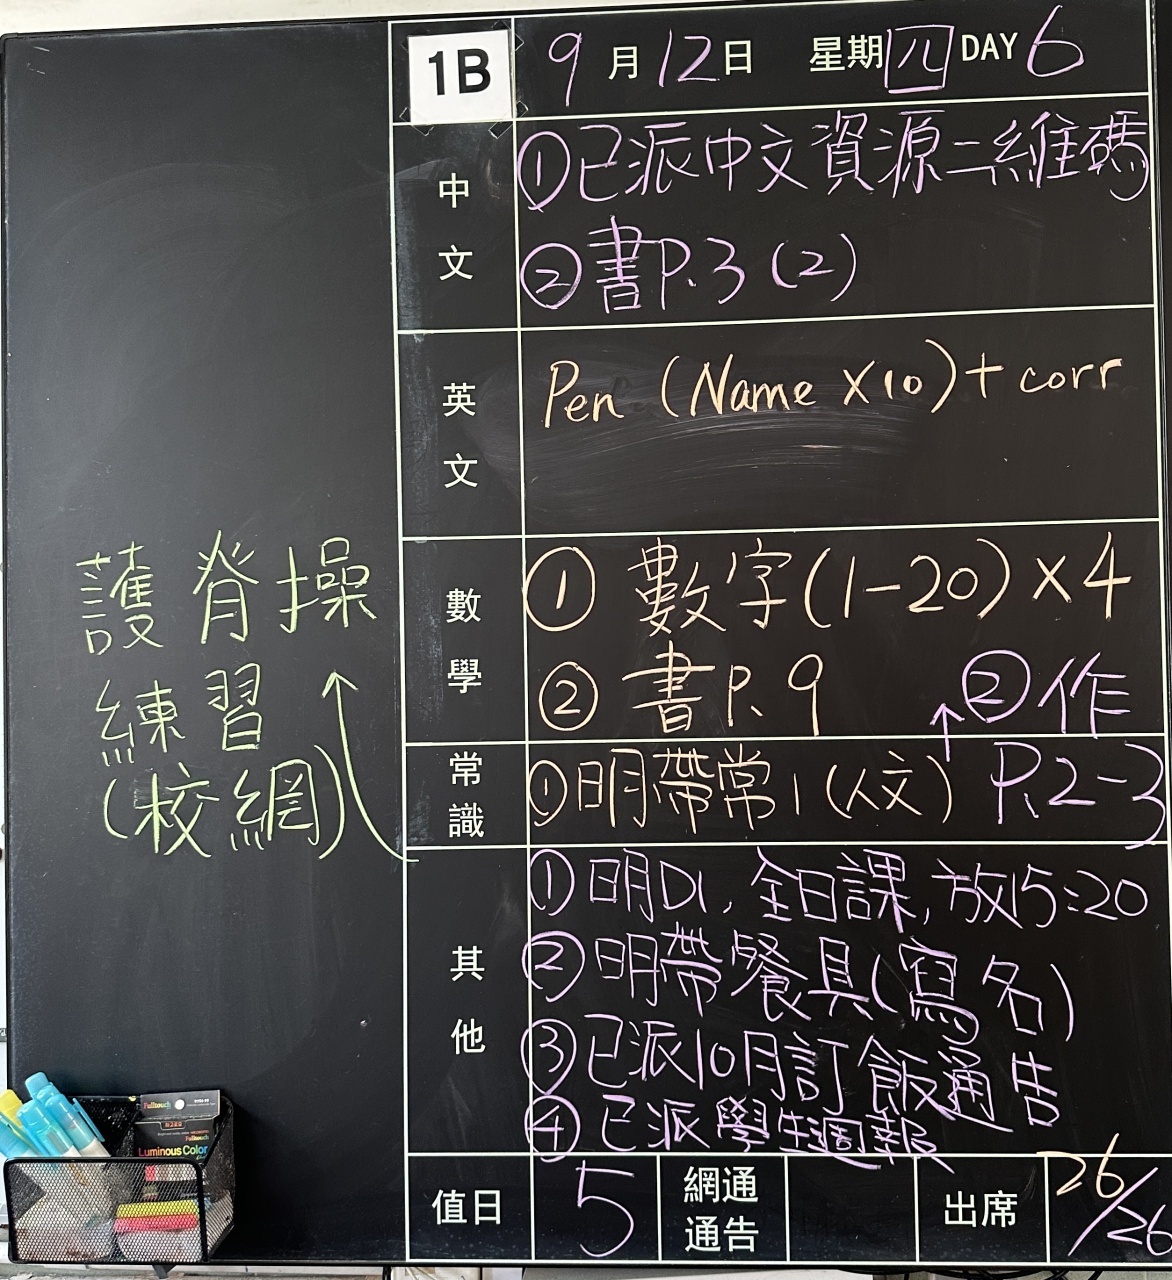 1B 9月12日 星期四 DAY 6
中文
①已派中文資源二維碼
②書P.3(2)
英文
Pen (Name X10)+corr
數學
① 數字(1-20)X4
② 書P.9
常識
①明帶常1(人文)
↑②作
P.2-3
其他
①明D1,全日課,放15:20
②明帶餐具(寫名)
③已派10月訂飯通告
④已派學生週報
護脊操
練習
(校網)
值日 5 網通通告 出席 26/26
Fulltouch
Fulltouch
Luminous Color